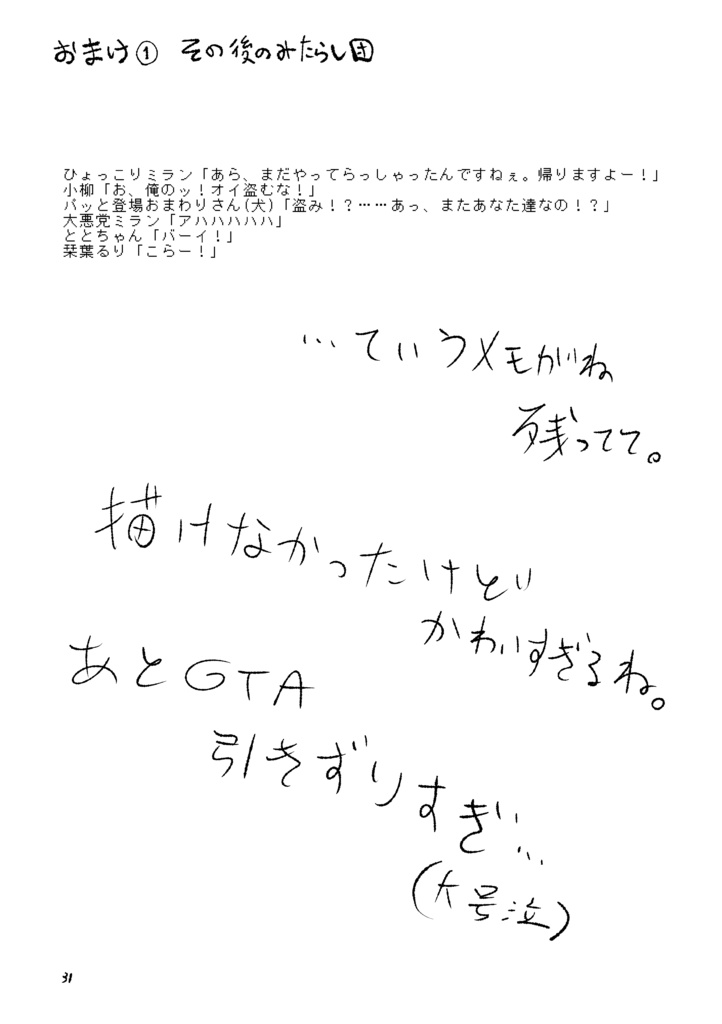 おまけ① その後のみたらし団
ひょっこりミラン「あら、まだやってらっしゃったんですねぇ。帰りますよー！」
小柳「お、俺のッ！オイ盗むな！」
パッと登場おまわりさん(犬)「盗み！？……あっ、またあなた達なの！？」
大悪党ミラン「アハハハハハ」
ととちゃん「バーイ！」
栞葉るり「こらー！」
…ていうメモがね
残ってて。
描けなかったけど
かわいすぎるね。
あとGTA
引きずりすぎ…
(大号泣)
31